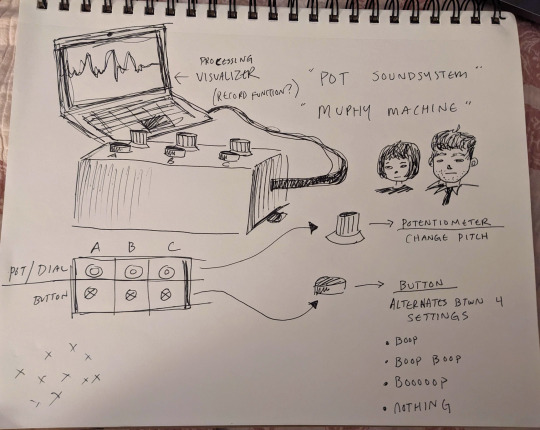 PROCESSING
VISUALIZER
(RECORD FUNCTION?)
"POT SOUNDSYSTEM"
"MUPHY MACHINE"
A
B
C
A B C
POT/DIAL
BUTTON
POTENTIOMETER
CHANGE PITCH
BUTTON
ALTERNATES BTWN 4
SETTINGS
• BOOP
• BOOP BOOP
• BOOOOOP
• NOTHING